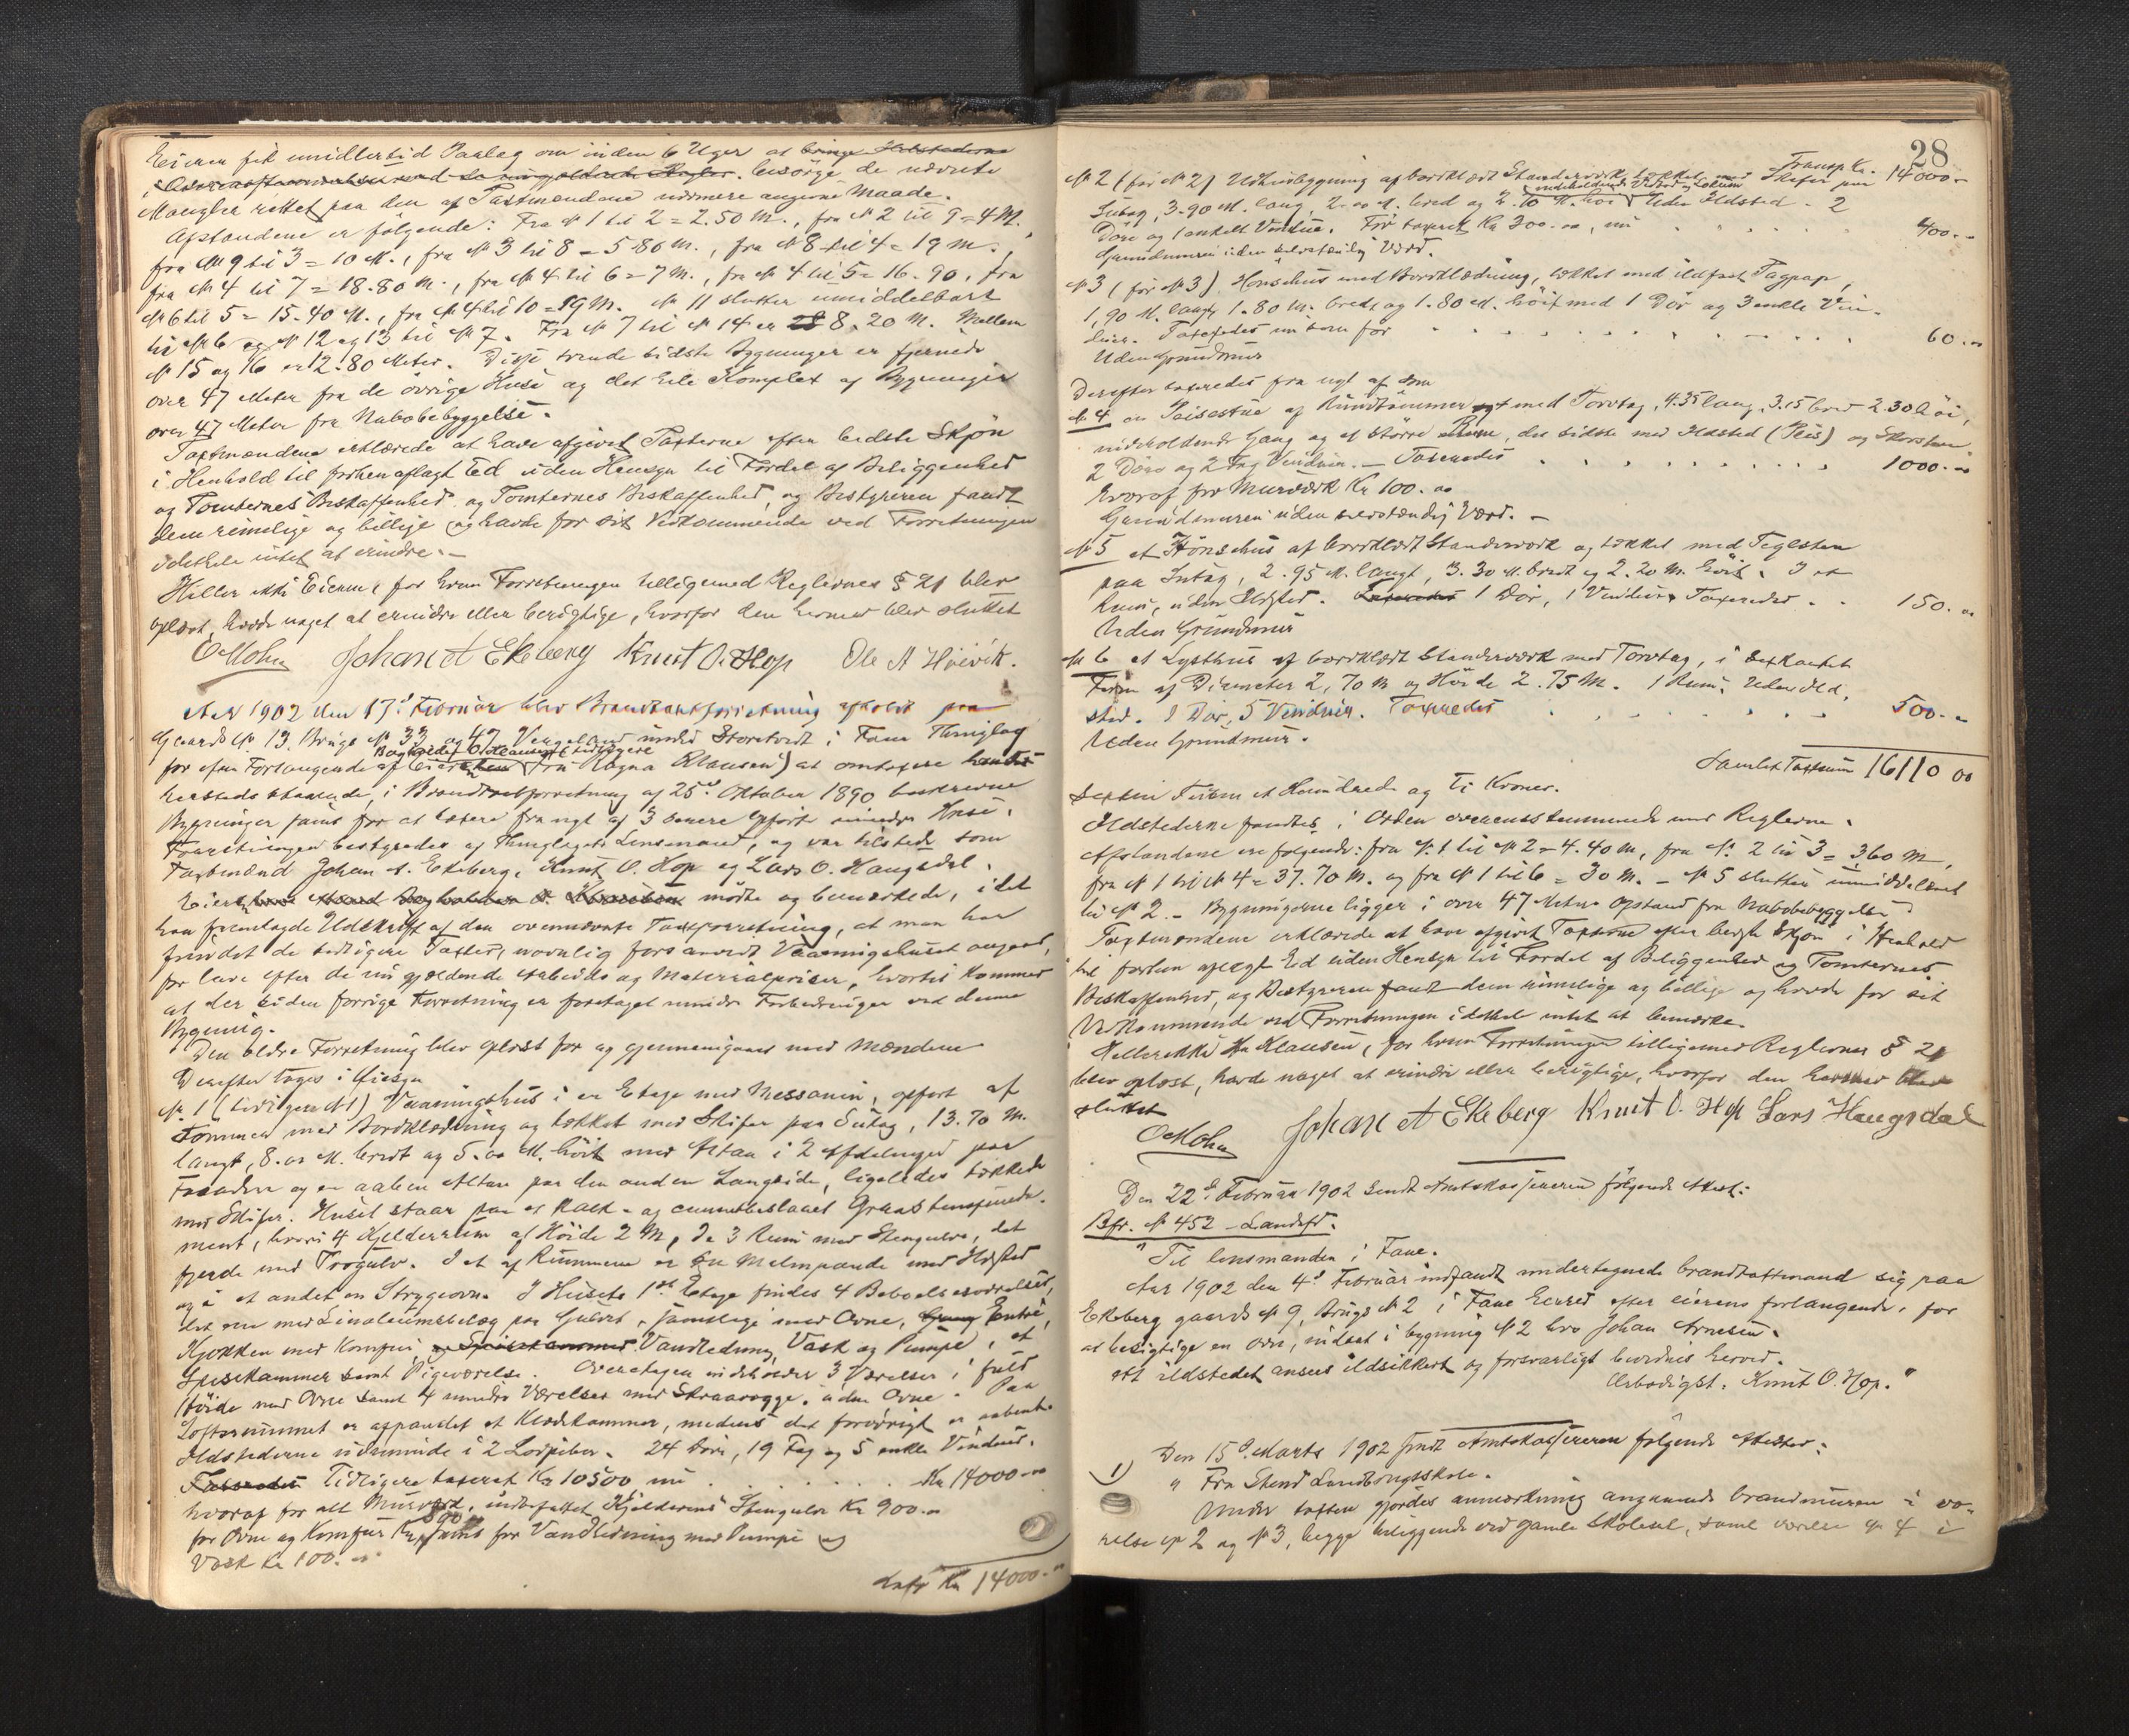 Eieren fik imidlertid Paalæg om inden 6 Uger at bringe Ildstederne
i Overensstemmelse med de nugjældende Regler. besörge de nævnte
Mangler rettet paa den af Taxtmændene nærmere angivne Maade.
Afstandene er følgende: Fra № 1 til 2 = 2.50 M., fra № 2 til 9 = 4 M.,
fra № 9 til 3 = 10 M., fra № 3 til 8 = 5.80 M., fra № 8 til 4 = 19 M.,
fra № 4 til 7 = 18.80 M., fra № 4 til 6 = 7 M., fra № 4 til 5 = 16.90, fra
№ 6 til 5 = 15.40 M., fra № 4 til 10 = 19 M. № 11 slutter umiddelbart
til № 6 og № 12 og 13 til № 7. Fra № 7 til № 14 er 8.20 M. Mellem
№ 15 og 16 er 12.80 Meter. Disse tvende sidste Bygninger er fjernede
over 47 Meter fra de övrige Huse og det hele Komplex af Bygninger
over 47 Meter fra Nabobebyggelse.
Taxtmændene erklærede at have afgivet Taxterne efter bedste Skjön
i Henhold til forhen aflagt Ed uden Hensyn til Fordel af Beliggenhed
og Tomternes Beskaffenhed og Tomternes Beskaffenhed, og Bestyreren fandt
dem rimelige og billige og havde for sit Vedkommende ved Forretningen
idethele intet at erindre.—
Heller ikke Eieren, for hvem Forretningen tilligemed Reglernes § 21 blev
oplæst, havde noget at erindre eller berigtige, hvorfor den hermed blev sluttet
O Mohn Johan A Ekeberg Knut O. Hop Ole A Hövik.
Aar 1902 den 17de Februar blev Brandtaxtforretning afholdt paa
Gaards № 13, Brugs № 33 og 47 under Storetvedt i Fane Thinglag
for efter Forlangende af Eieren Boghandler O. Klausen (tidligere Fru Ragna Klausen) at omtaxere hendes
hersteds staaende, i Brandtaxtforretning af 25de Oktober 1890 beskrevne
Bygninger samt for at taxere fra nyt af 3 senere opførte mindre Huse.
Forretningen bestyredes af Thinglagets Lensmand, og var tilstede som
Taxtmænd Johan A. Ekeberg, Knut O. Hop og Lars O. Haugsdal.
Eieren mødte og bemærkede, idet
han fremlagde Udskrift af den ovennævnte Taxtforretning, at man har
fundet de tidligere Taxter, navnlig forsaavidt Vaaningshuset angaar,
for lave efter de nu gjældende Arbeids og Materialpriser, hvortil kommer
at der siden forrige Forretning er foretaget mindre Forbedringer ved denne
Bygning.
Den ældre Forretning blev oplæst for og gjennemgaaet med Mændene
Derefter toges i Øiesyn
№ 1 (tidligere № 1) Vaaningshus i en Etage med Messanin, opfört af
Tømmer med Bordklædning og tækket med Skifer paa Sutag, 13.70 M.
langt, 8.00 M. bredt og 5.00 M. höit med Altan i 2 Afdelinger paa
Facaden og en aaben Altan paa den anden Langside, ligeledes tækkede
med Skifer. Huset staar paa et Kalk- og cementslaaet Graastensfunda-
ment, hvori 4 Kjelderrum af Höide 2 M, de 3 Rum med Stengulve, det
fjerde med Trægulv. I et af Rummene er en med Ildsted
og i et andet en Strygeovn. I Husets 1ste Etage findes 4 Beboelsesværelser,
det ene med Linoleumsbelæg paa Gulvet, samtlige med Ovne, Gang Entré,
Kjökken med Komfur og Spisekammer Vandledning, Vask og Pumpe, et
Spisekammer samt Pigeværelse. Overetagen indeholder 3 Værelser i fuld
Höide med Ovne samt 4 mindre Værelser med Skraavægge, uden Ovne. Paa
Loftsrummet er afpanelet et Klædekammer, medens det forövrigt er aabent.
Ildstederne udmunde i 2 Lodpiber. 24 Døre, 19 Fag og 5 enkle Vinduer.
Taxeredes Tidligere taxeret Kr 10500 nu . . . . Kr 14000.00
hvoraf for alt Murværk, indbefattet Kjelderens Stengulv Kr 900.00
for Ovne og Komfur Kr 890 samt for Vandledning med Pumpe og
Vask Kr 100.00
Latr Kr 14000.00
28
Transp Kr. 14000.-
№ 2 (för № 2) Udhusbygning af bordklædt Standerværk tækket med Skifer paa
Sutag, 3.90 M. lang, 2.00 M. bred og 2.70 M. höi indeholdende Vedbod og Lokum Uden Ildsted. 2
Döre og 1 enkelt Vindue. För taxeret Kr 300.00, nu . . . . 400.-
Grundmuren uden selvstændig Værd.
№ 3 (för № 3). Hönsehus med Bordklædning, tækket med ildfast Tagpap,
1.90 M. langt, 1.80 M. bredt og 1.80 M. höit med 1 Dör og 3 enkle Vin-
duer. Taxeredes nu som för . . . . 60.00
Uden Grundmur
Derefter taxeredes fra nyt af som
№ 4 en Peisestue af Rundtömmer med Torvtag, 4.35 lang, 3.15 bred 2.30 höi,
indeholdende Gang og et större Rum, det sidste med Ildsted (Peis) og Skorsten
2 Döre og 2 Fag Vinduer. — Taxeredes . . . . 1000.00
hvoraf for Murværk Kr 100.00
Grundmuren uden selvstændig Værd. —
№ 5 et Hönsehus af bordklædt Standerværk og tækket med Teglsten
paa Sutag, 2.95 M. langt, 3.30 M. bredt og 2.20 M. höit. I et
Rum, uden Ildsted. Taxeredes 1 Dör, 1 Vindue, Taxeredes . . 150.00
Uden Grundmur
№ 6 et Lysthus af bordklædt Standerværk med Torvtag, i sexkantet
Form af Diameter 2,70 M og Höide 2.75 M. 1 Rum. Uden Ild-
sted. 1 Dör, 5 Vinduer. Taxeredes . . . . 500.00
Uden Grundmur.
Samlet Taxtsum 16110 00
Sexten Tusen et Hundrede og Ti Kroner.
Ildstederne fandtes i Orden overensstemmende med Reglerne.
Afstandene ere følgende: fra № 1 til № 2 = 4.40 M, fra № 2 til 3 = 3,60 M,
fra № 1 til № 4 = 37.70 M. og fra № 1 til 6 = 30 M. — № 5 slutter umiddelbart
til № 2. — Bygningerne ligger i over 47 Meters Afstand fra Nabobebyggelse.
Taxtmændene erklærede at have afgivet Taxterne efter bedste Skjön i Henhold
til forhen aflagt Ed uden Hensyn til Fordel af Beliggenhed og Tomternes
Beskaffenhed, og Bestyreren fandt dem rimelige og billige og havde for sit
Vedkommende ved Forretningen idethele intet at bemærke.
Heller ikke Hr Klausen, for hvem Forretningen tilligemed Reglernes § 21
blev oplæst, havde noget at erindre eller berigtige, hvorfor den hermed blev
sluttet
O Mohn Johan A Ekeberg Knut O. Hop Lars Haugsdal
Den 22de Februar 1902 sendt Amtskassjereren følgende Attest:
Bfr. № 452 – Landsfd.
"Til lensmanden i Fane.
Aar 1902 den 4de Februar indfandt undertegnede brandtaxtmand sig paa
Ekeberg gaards № 9, brugs № 2 i Fane herred efter eierens forlangende, for
at besigtige en ovn, indsat i bygning № 2 hos Johan Arnesen.
At ildstedet ansees ildsikkert og forsvarligt bevidnes herved.
Ærbødigst. Knut O. Hop."
Den 15de Marts 1902 sendt Amtskassjereren følgende Attester:
1) " Fra Stend Landbrugsskole.
Under taxten gjordes anmærkning angaaende brandmuren i væ-
relse № 2 og № 3, begge beliggende ved gamle Skolesal, samt værelse № 4 i